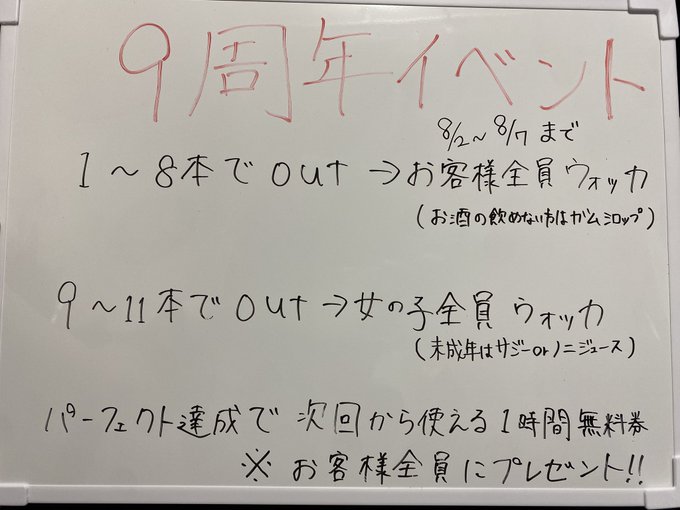 9周年イベント
8/2～8/7まで
1～8本でout→お客様全員ウォッカ
(お酒の飲めない方はガムシロップ)
9～11本でout→女の子全員ウォッカ
(未成年はサジーorノニジュース)
パーフェクト達成で次回から使える1時間無料券
※お客様全員にプレゼント!!